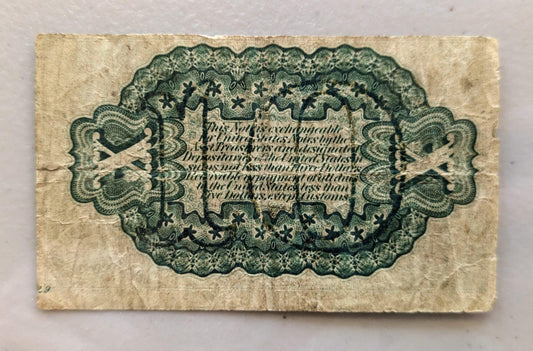 X
10
X
This Note is exchangeable
for United States Notes by the
Asst Treasurers and designated
Depositaries of the United States in
sums not less than Three Dollars
Receivable in payment of all dues to
the United States less than
Five Dollars, except Customs.